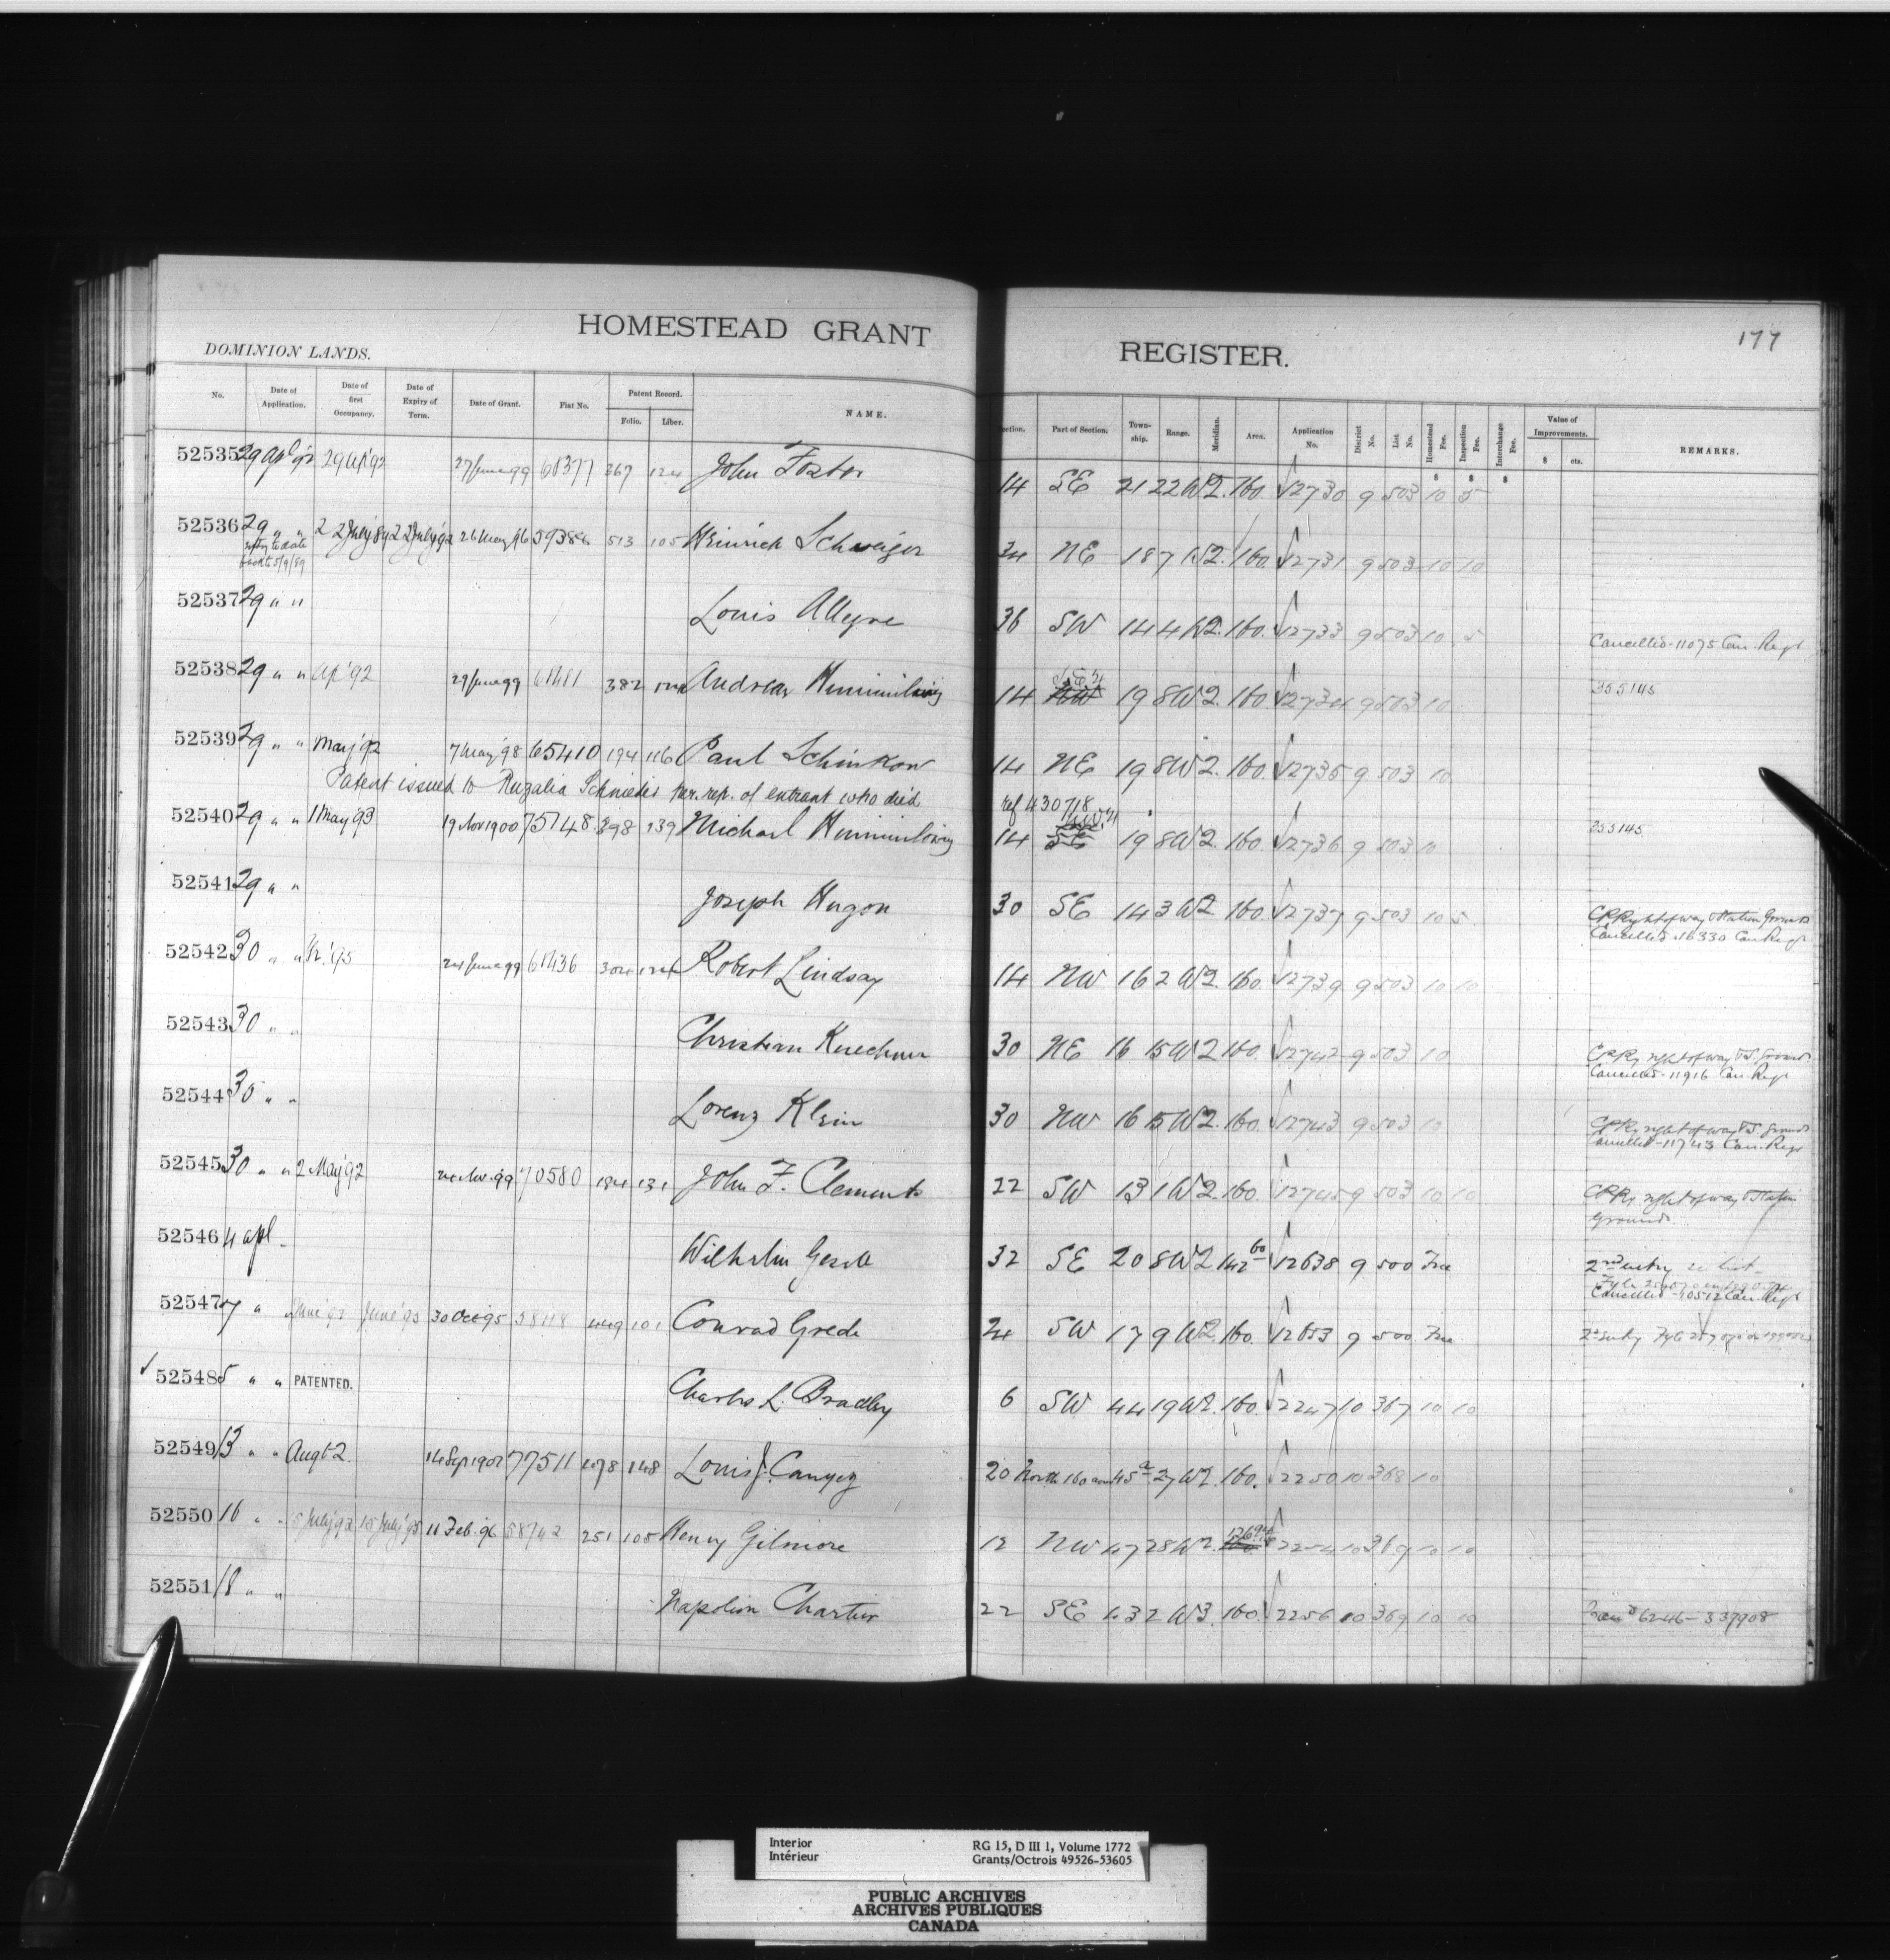 177
HOMESTEAD GRANT REGISTER.
DOMINION LANDS.
No. Date of Application. Date of first Occupancy. Date of Expiry of Term. Date of Grant. Fiat No. Patent Record. Folio. Liber. NAME. Section. Part of Section. Township. Range. Meridian. Area. Application No. District No. List No. Homestead Fee. Inspection Fee. Interchange Fee. Value of Improvements. $ cts. REMARKS.
52535 29 Apl '92 29 Ap '92 27 June 99 68377 367 124 John Foster 14 SE 21 22 W2. 160. 12730 9 503 10 5
52536 29 " " 2 July 89 2 July '92 26 May 96 59386 513 105 Heinrich Schweiger 34 NE 18 7 W2. 160. 12731 9 503 10 10
52537 29 " " Louis Alleyne 36 SW 14 4 W2. 160. 12733 9 503 10 5 Cancelled - 11075 Can. Regr
52538 29 " " Ap '92 29 June 99 68481 382 Andreas 14 NW S.E.¼ 19 8 W2. 160. 12734 9 503 10 355145
52539 29 " " May '92 7 May '98 65410 194 116 Paul Schinkow 14 NE 19 8 W2. 160. 12735 9 503 10
Patent issued to Schmiedes per. rep. of entrant who died ref 430718
52540 29 " " 1 May 93 19 Nov 1900 75148 398 139 Michael 14 SE 19 8 W2. 160. 12736 9 503 10 355145
52541 29 " " Joseph Hugon 30 SE 14 3 W2 160. 12737 9 503 10 5 CPRy right of way & Station Grounds
Cancelled - 16330 Can. Regr
52542 30 " " 24 June 99 68436 304 124 Robert Lindsay 14 NW 16 2 W2. 160. 12739 9 503 10 10
52543 30 " " Christian Kuechner 30 NE 16 15 W2 160. 12742 9 503 10 CPRy right of way & S. Grounds
Cancelled - 11916 Can. Regr
52544 30 " " Lorenz Klein 30 NW 16 15 W2. 160. 12743 9 503 10 CPRy right of way & S. Grounds
Cancelled - 11743 Can. Regr
52545 30 " " 2 May '92 24 Nov. 99 70580 184 131 John F. Clements 22 SW 13 1 W2. 160. 12745 9 503 10 10 CPRy right of way & Station
Grounds.
52546 4 apl Wilhelm 32 SE 20 8 W2 142 60 12638 9 500 Free 2nd entry
Cancelled - 10512 Can. Regr
52547 7 " June '92 June '95 30 Oct '95 58118 449 101 Conrad Grede 24 SW 17 9 W2. 160. 12653 9 500 Free 2nd entry
52548 5 " " PATENTED. Charles L. Bradley 6 SW 44 19 W2. 160. 2247 10 367 10 10
52549 13 " " Augt 2. 14 Sep 1902 77511 478 148 Louis J. 20 North 160 acres 45 a 27 W2. 160. 2250 10 368 10
52550 16 " " 15 July '92 15 July '95 11 Feb. '96 58742 251 105 Henry Gilmore 12 NW 47 28 W2. 160. 2254 10 369 10 10
52551 18 " " Napoleon Chartier 22 SE 43 2 W3. 160. 2256 10 369 10 10 6246 - 337908
Interior
Intérieur
RG 15, D III 1, Volume 1772
Grants/Octrois 49526-53605
PUBLIC ARCHIVES
ARCHIVES PUBLIQUES
CANADA